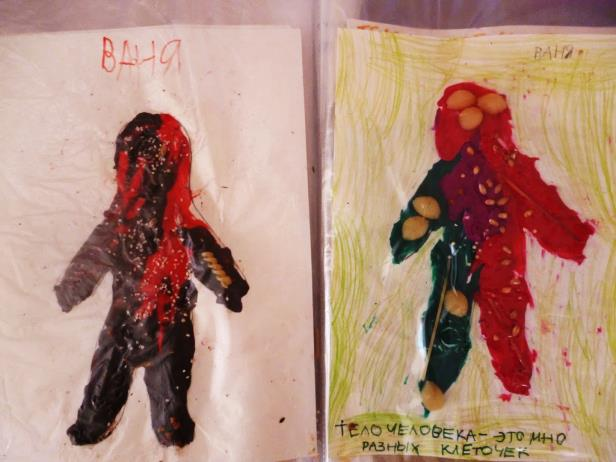 ВАНЯ
ВАНЯ
ТЕЛО ЧЕЛОВЕКА - ЭТО МНО
РАЗНЫХ КЛЕТОЧЕК